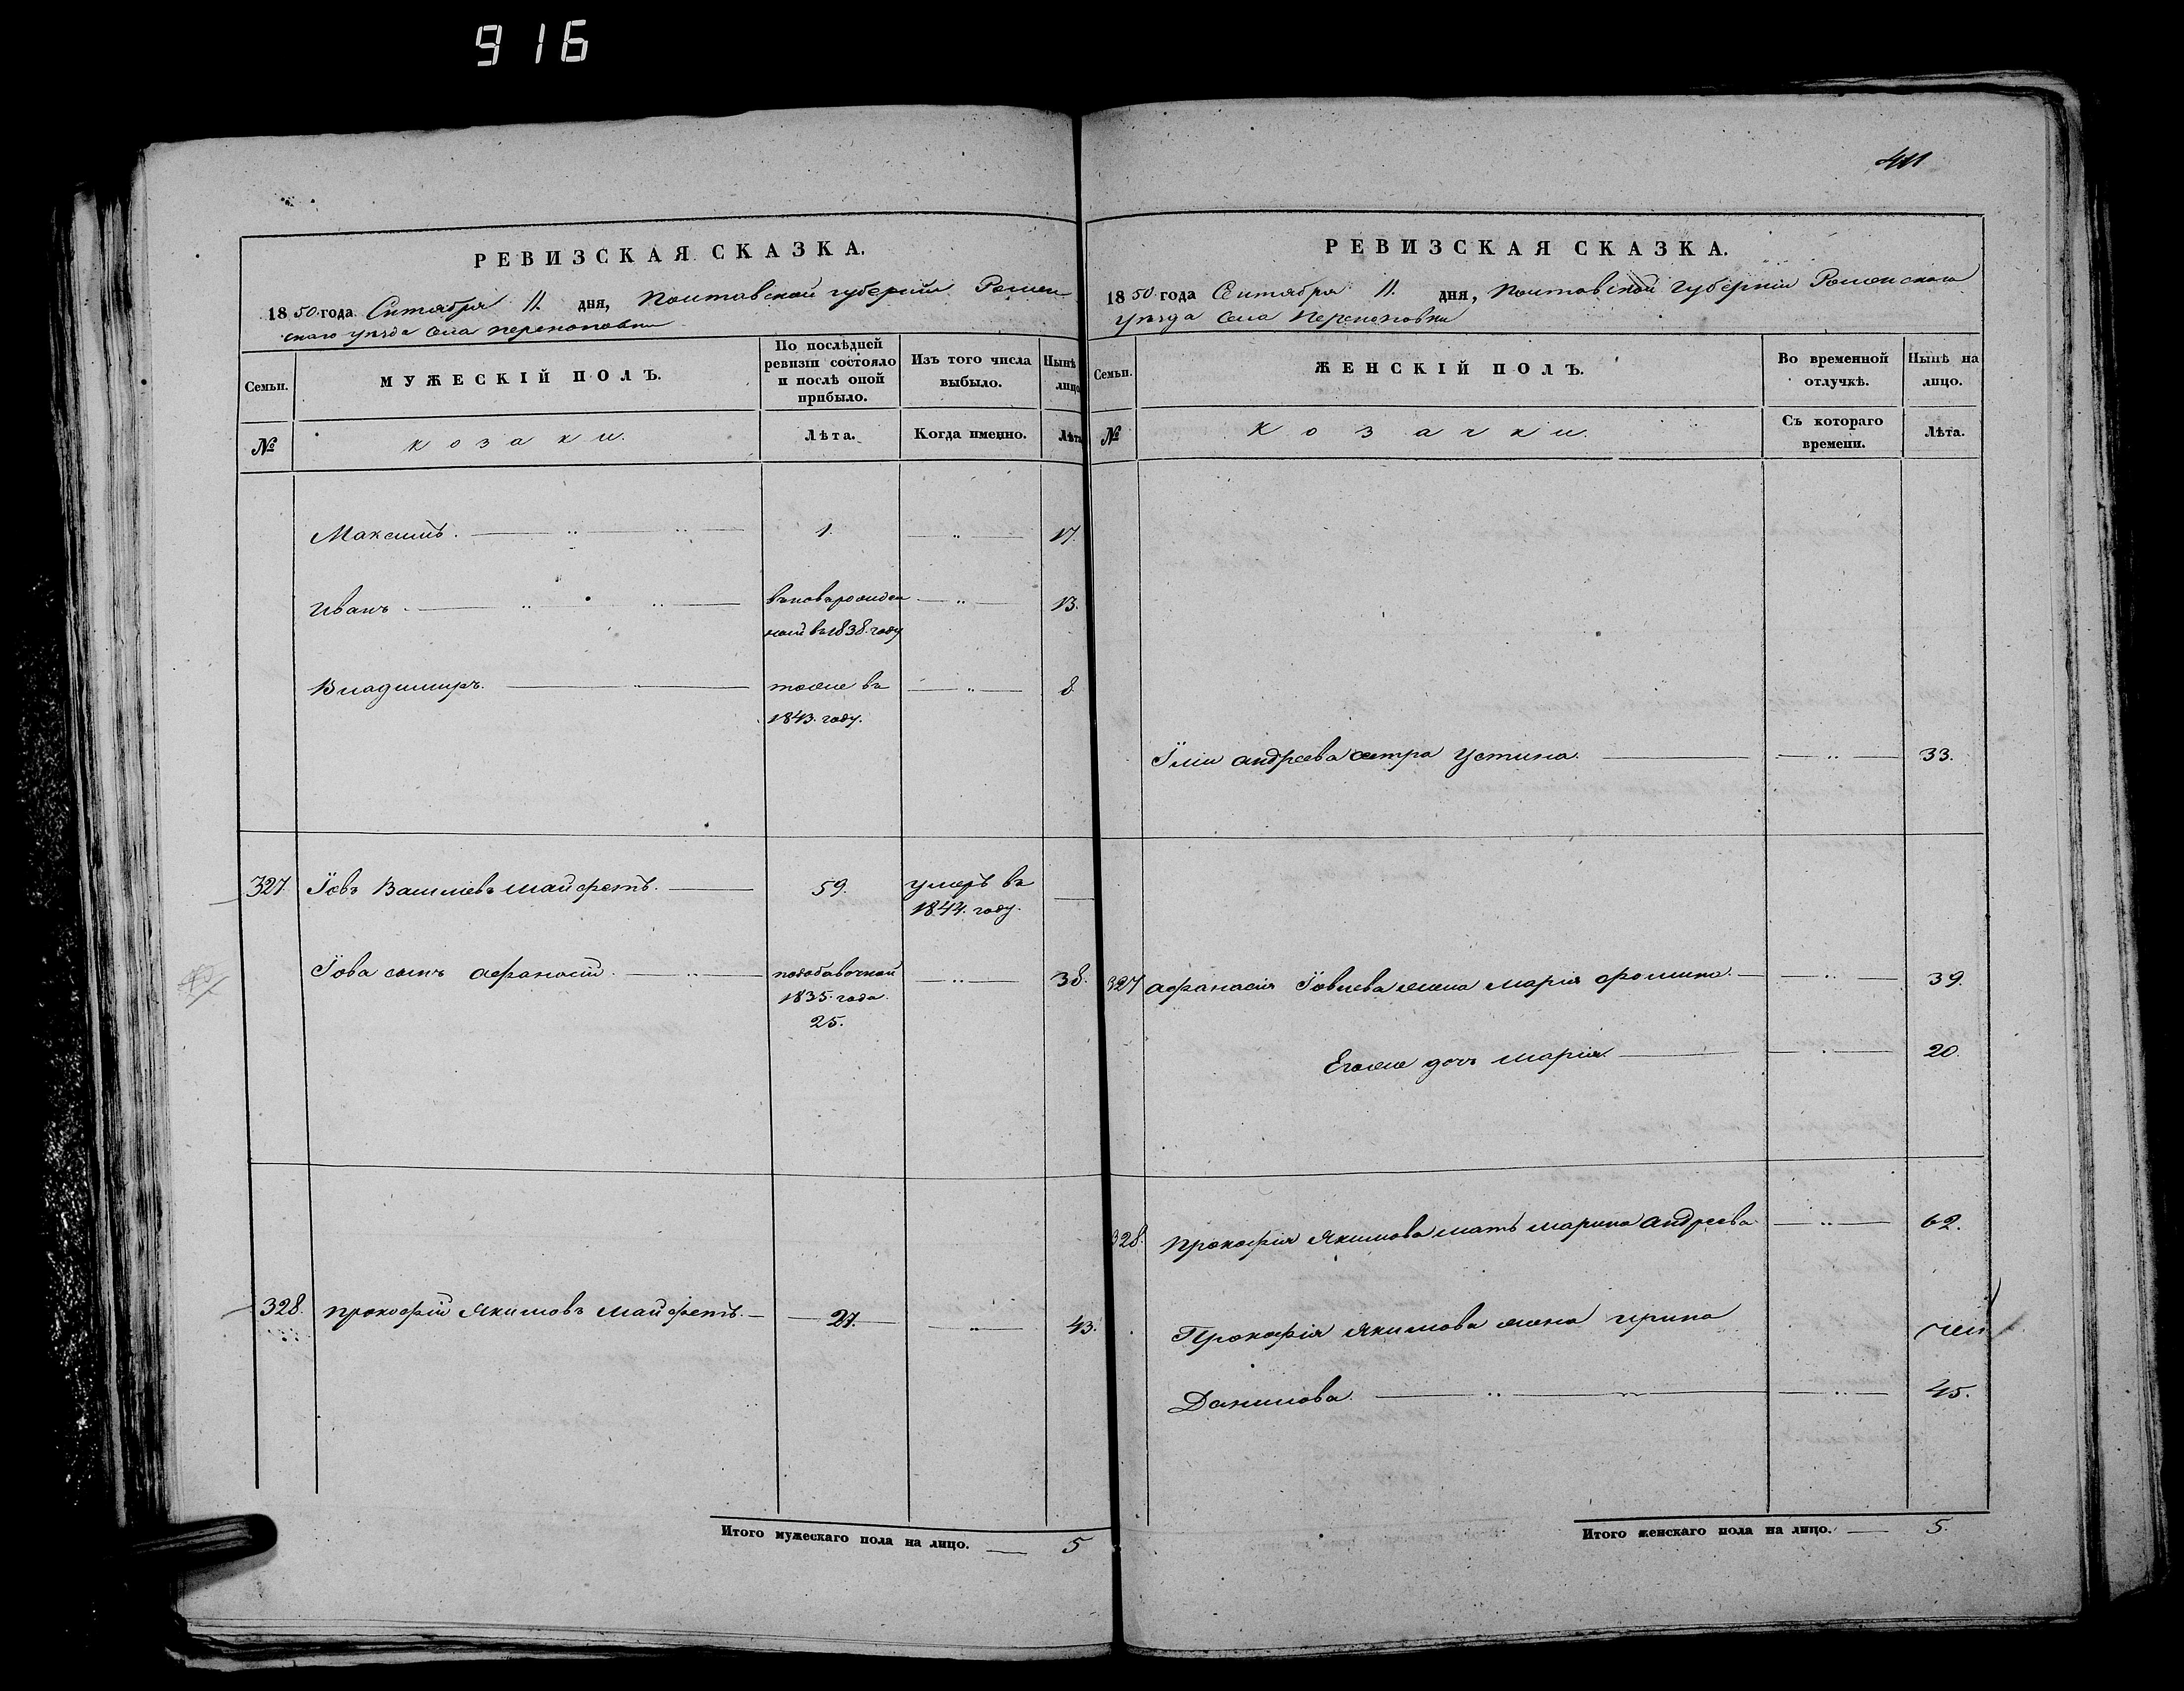 916
411
РЕВИЗСКАЯ СКАЗКА.
1850 года Сентября 11 дня, Полтавской губернии Ромен
скаго уѣзда села Перекоповки
Семьи.
МУЖЕСКІЙ ПОЛЪ.
По послѣдней
ревизіи состояло
и послѣ оной
прибыло.
Изъ того числа
выбыло.
Нынѣ
лицо
№
козаки.
Лѣта.
Когда именно.
Лѣта
Максимъ. 1. 17.
Иванъ. вновьрожден 13.
ной въ 1838. году
Владимиръ. тоже въ 8.
1843. году.
327. Іовъ Васильевъ Майфетъ. 59. умеръ въ
1844. году.
Іова сынъ Афанасій. подобавочной 38.
1835. года.
25.
328. Прокофій Якимовъ Майфетъ. 27. 43.
Итого мужескаго пола на лицо. 5
РЕВИЗСКАЯ СКАЗКА.
1850 года Сентября 11. дня, Полтавской Губерніи Роменскаго
уѣзда села Перекоповки
Семьи.
ЖЕНСКІЙ ПОЛЪ.
Во временной
отлучкѣ.
Нынѣ на
лицо.
№
Козачки.
Съ котораго
времени.
Лѣта.
Андреева сестра Устина. 33.
327 Афанасія Іовлева жена Марія Фомина. 39.
Егоже дочь Марія. 20.
328. Прокофія Якимова мать Марина Андреева 62.
Прокофія Якимова жена Ирина
Данилова. 45.
Итого женскаго пола на лицо. 5.